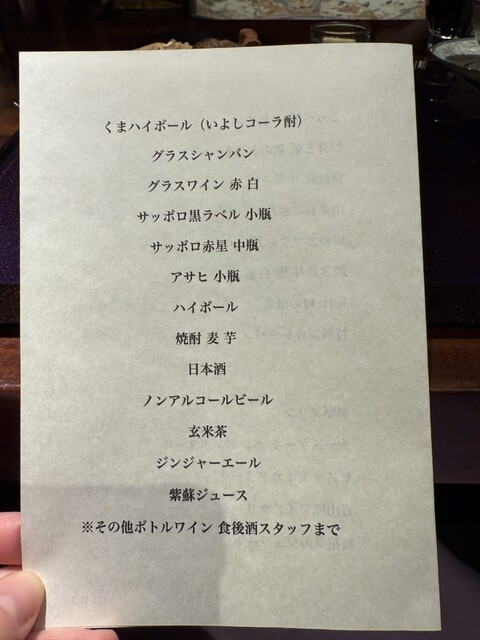 くまハイボール（いよしコーラ酎）
グラスシャンパン
グラスワイン 赤 白
サッポロ黒ラベル 小瓶
サッポロ赤星 中瓶
アサヒ 小瓶
ハイボール
焼酎 麦 芋
日本酒
ノンアルコールビール
玄米茶
ジンジャーエール
紫蘇ジュース
※その他ボトルワイン 食後酒スタッフまで